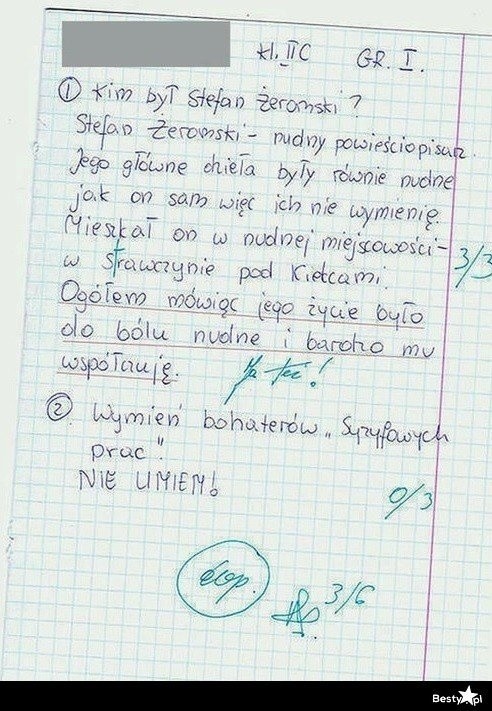 kl. II C GR. I.
① Kim był Stefan Żeromski?
Stefan Żeromski - nudny powieściopisarz.
Jego główne dzieła były równie nudne
jak on sam więc ich nie wymienię.
Mieszkał on w nudnej miejscowości -
w Strawczynie pod Kielcami.
3/3
Ogółem mówiąc jego życie było
do bólu nudne i bardzo mu
współczuję.
Ja też!
② Wymień bohaterów „Syzyfowych
prac".
NIE UMIEM!
0/3
dop.
3/6
Besty.pl